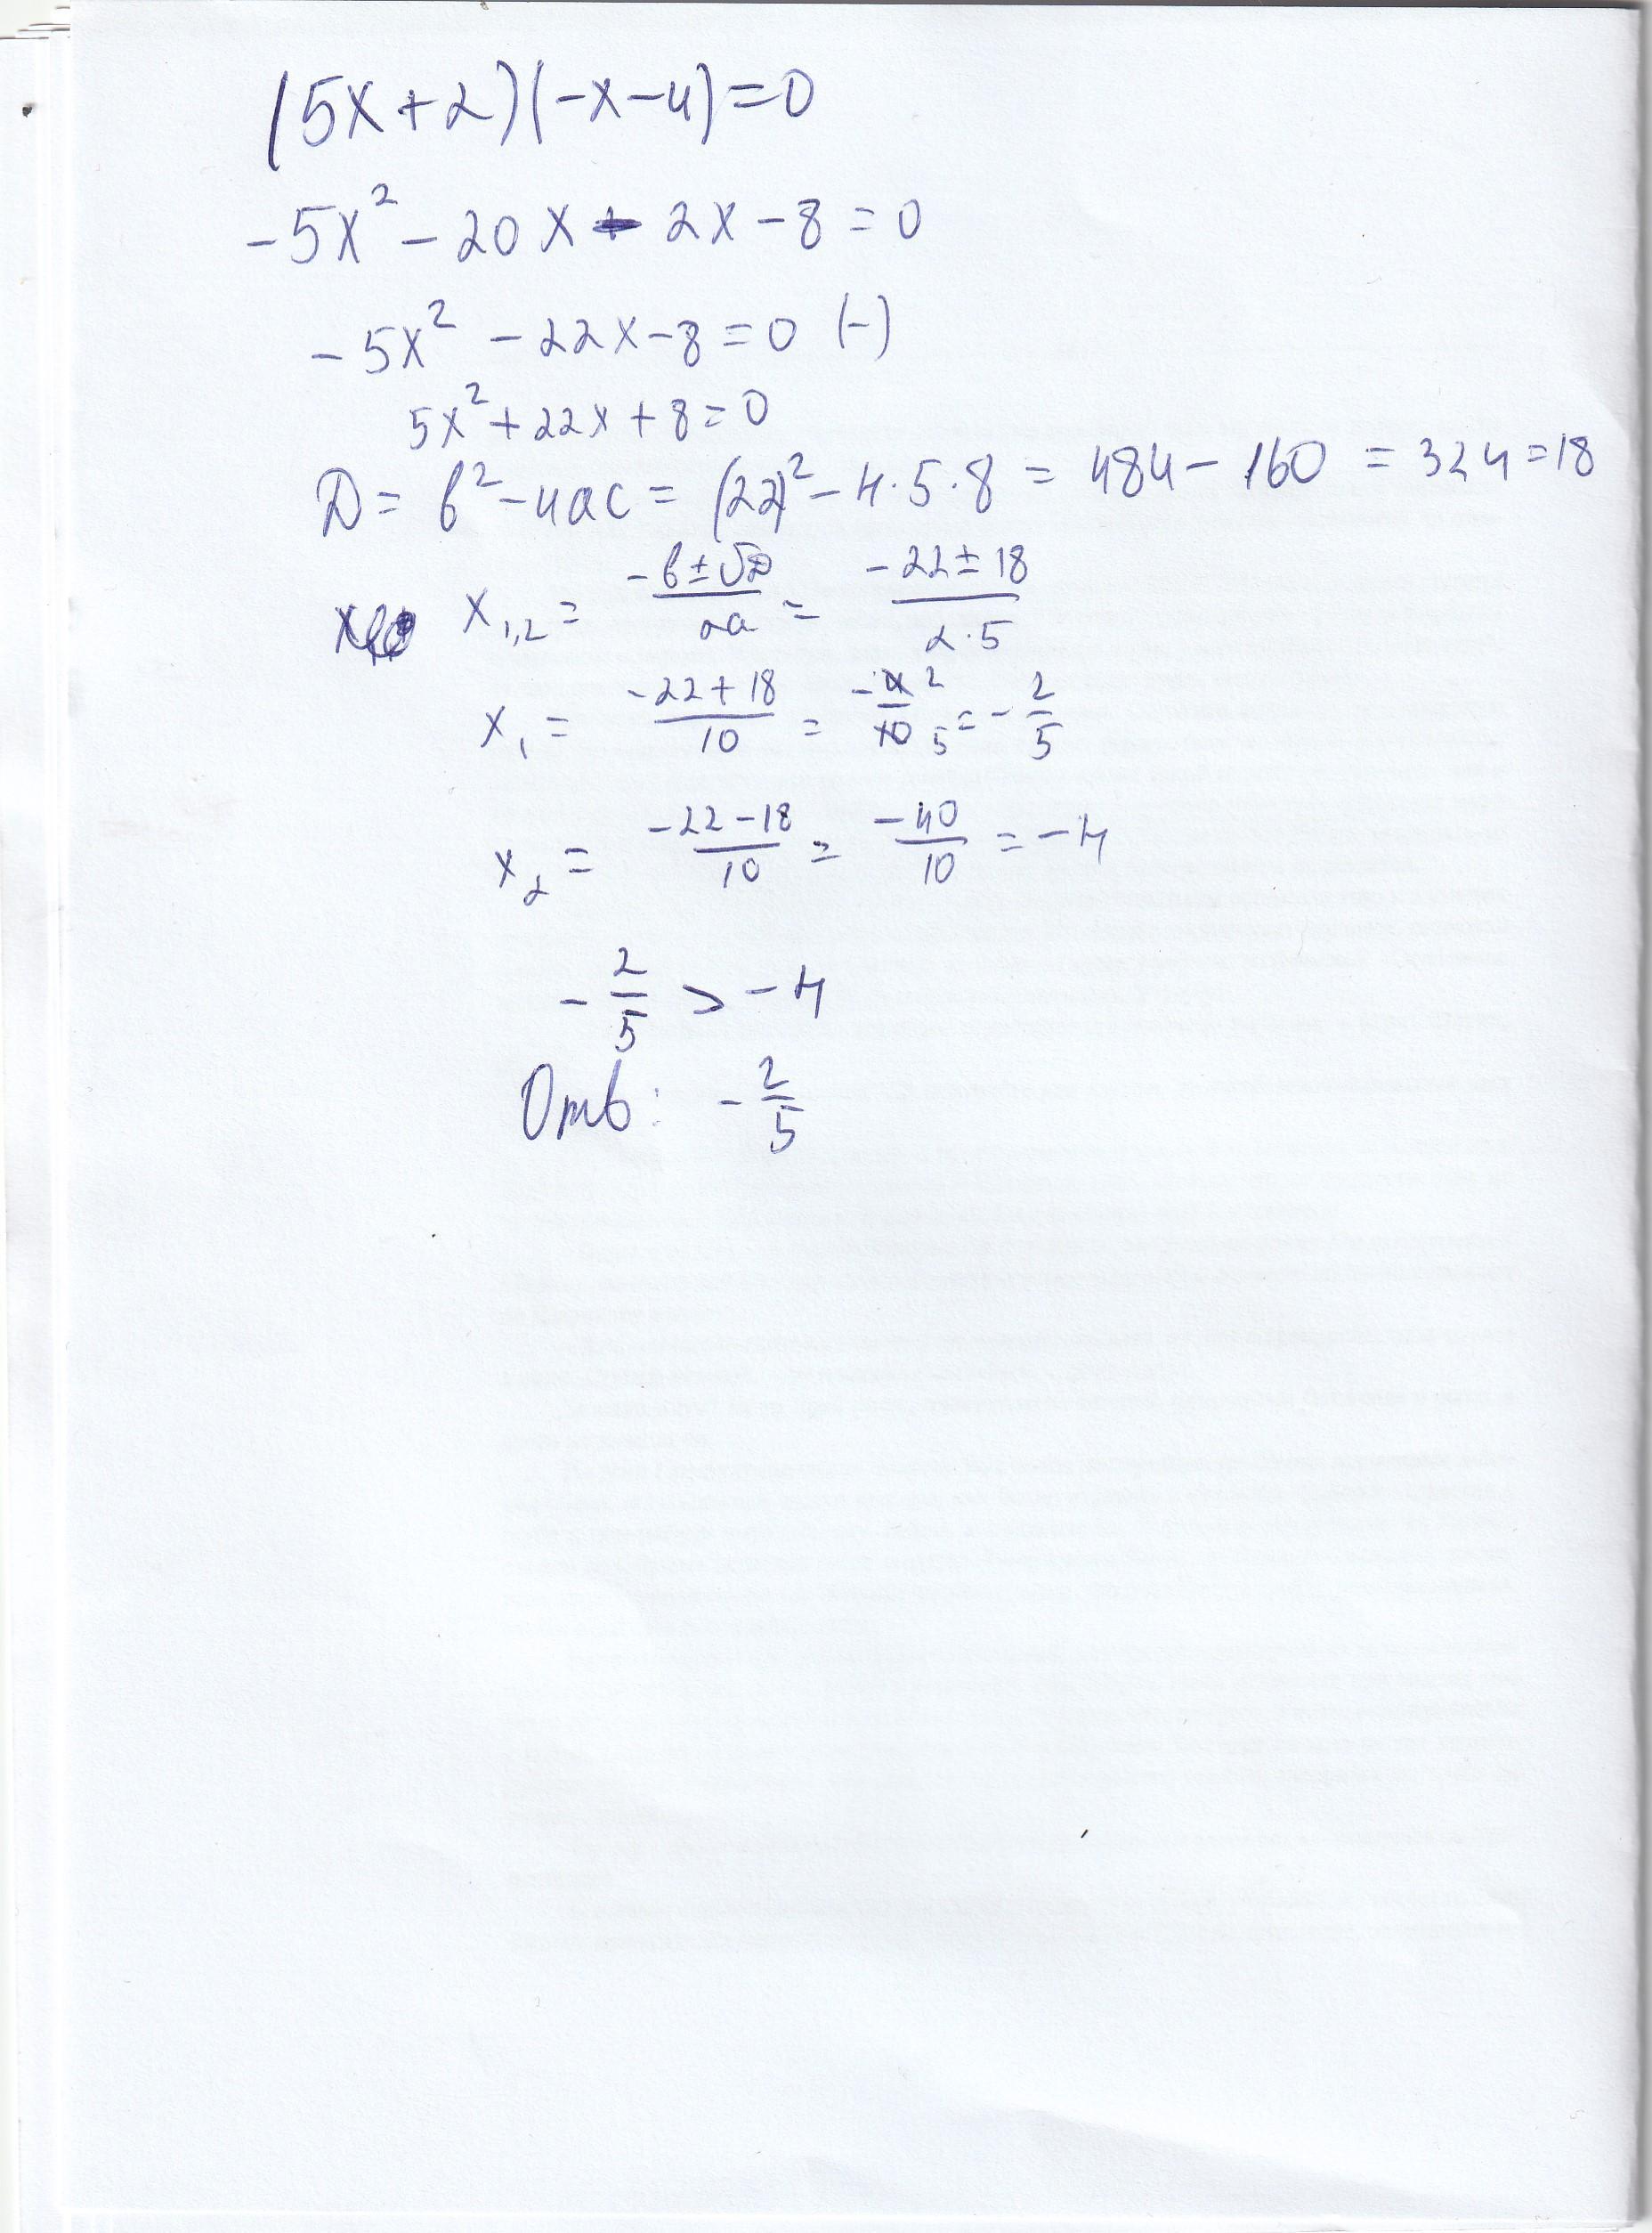 (5x+2)(-x-4)=0
-5x² - 20x - 2x - 8 = 0
-5x² - 22x - 8 = 0 (-)
5x² + 22x + 8 = 0
D = b² - 4ac = (22)² - 4·5·8 = 484 - 160 = 324 = 18
x₁,₂ = (-b±√D)/2a = (-22±18)/2·5
x₁ = (-22+18)/10 = -4/10 2/5 = -2/5
x₂ = (-22-18)/10 = -40/10 = -4
-2/5 > -4
Отв: -2/5